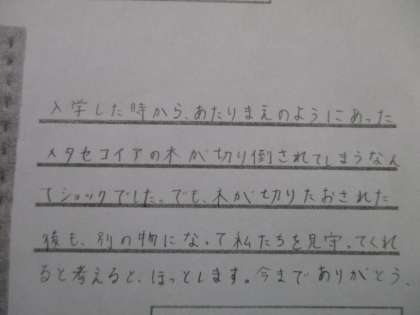 入学した時から、あたりまえのようにあった
メタセコイアの木が切り倒されてしまうなん
てショックでした。でも、木が切りたおされた
後も、別の物になって私たちを見守ってくれ
ると考えると、ほっとします。今までありがとう。